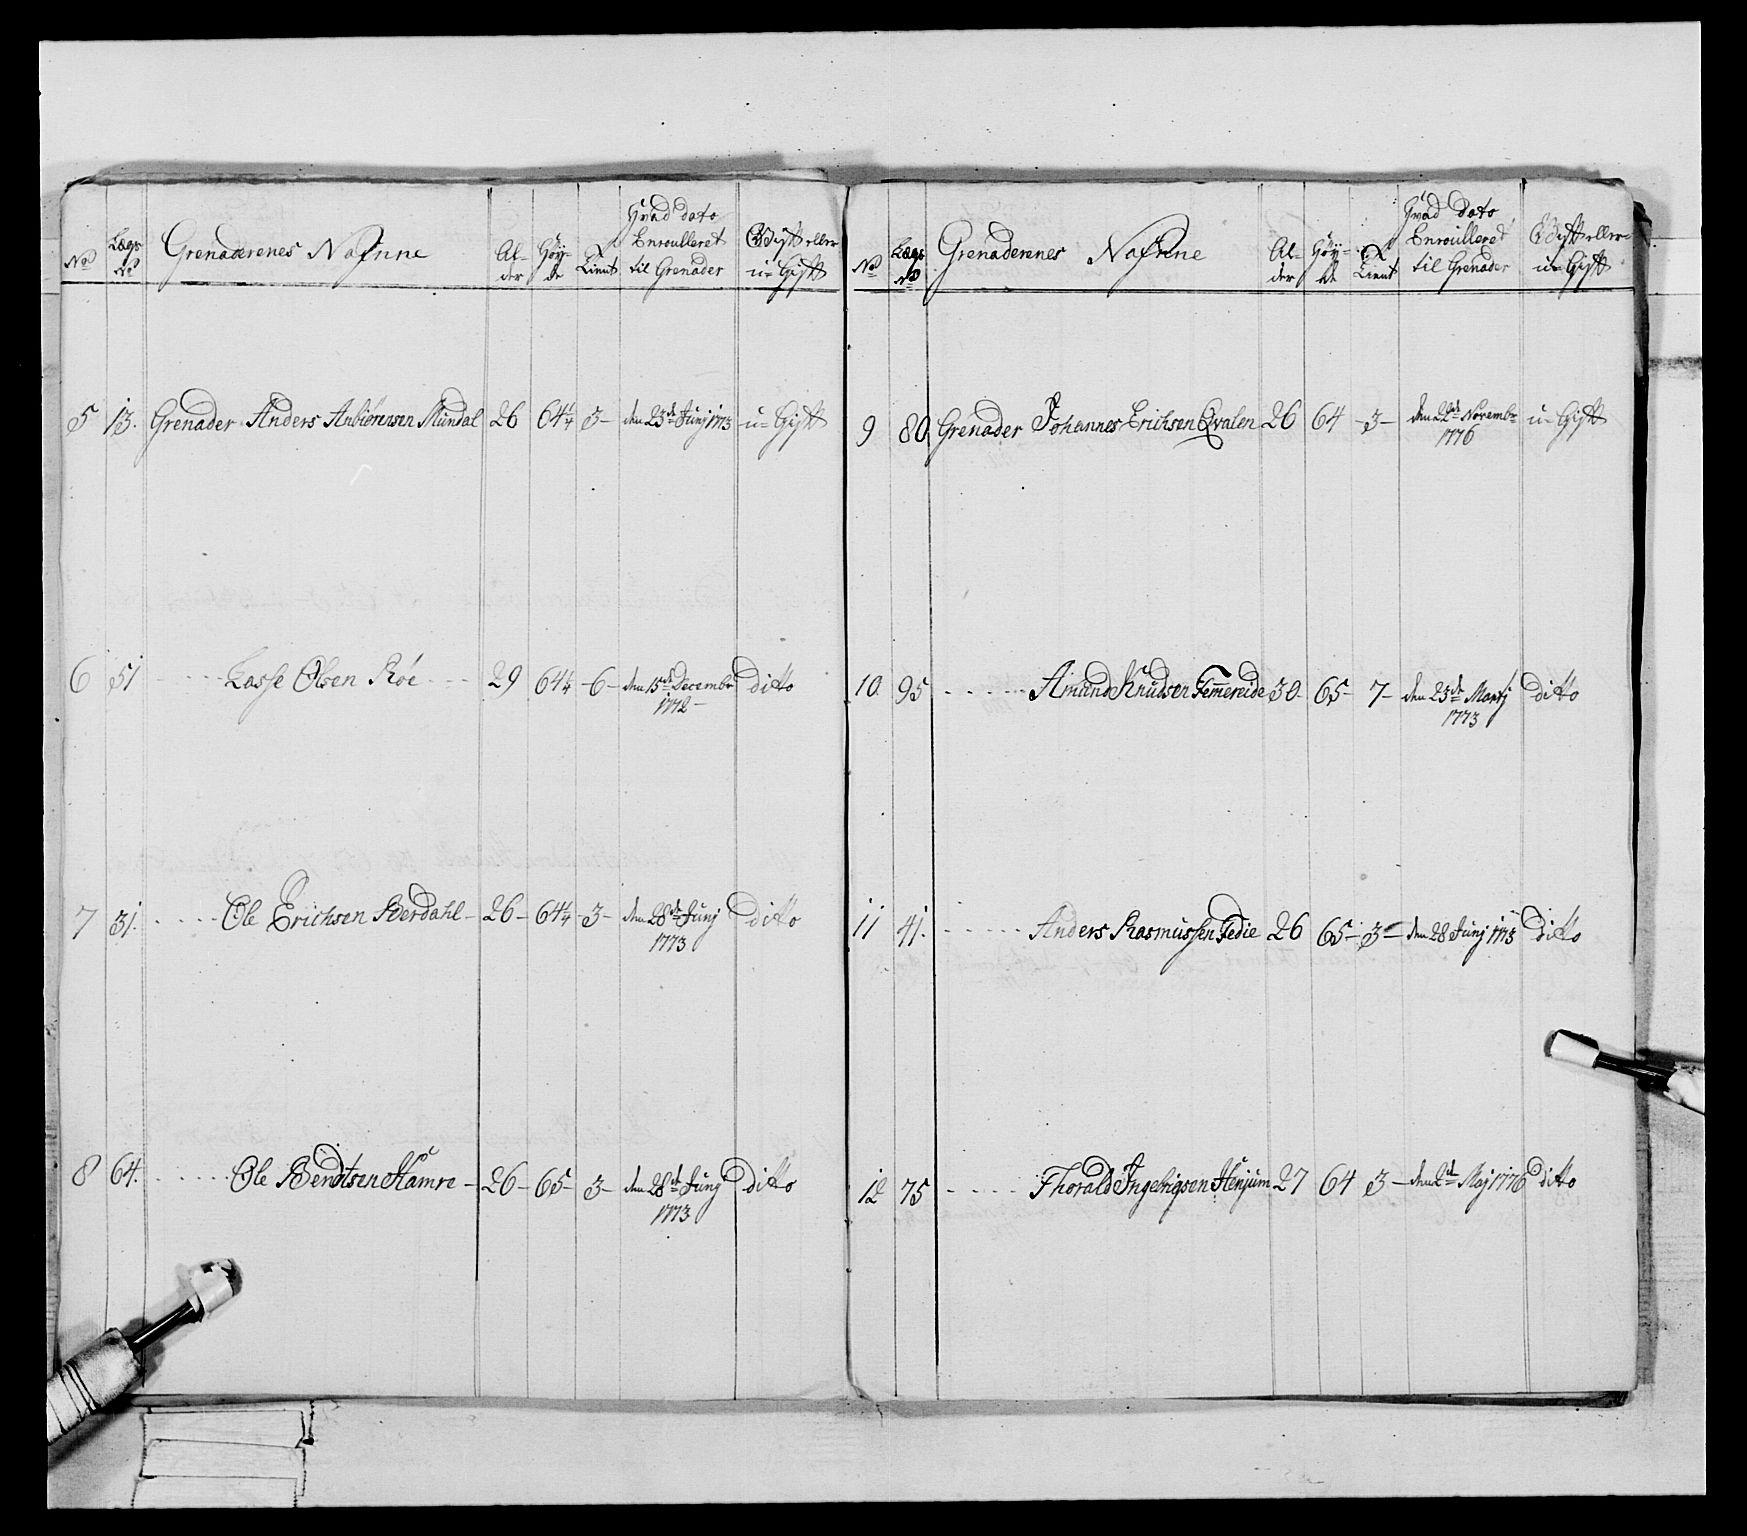 No
Lægs No
Grenaderenes Nafnne
Al-
der
Höy-
de
Tient
Hvad dato
Enroulleret
til Grenader
Gift eller
u-Gift
5 13. Grenader Anders Anbiörnsen Mundal 26 64¼ 3- den 23de Junj 1773 u-Gift
6 51 Lasse Olsen Röe 29 64¼ -6- den 15de Decembr ditto
1772-
7 31. Ole Erichsen Berdahl- 26- 64¼ -3- den 28de Junj ditto
1773
8 64. Ole Bendtsen Hamre- 26- 65- 3- den 28de Junj ditto
1773
No
Lægs
No
Grenaderenes Nafnne
Al-
der
Höy-
de
Tient
Hvad dato
Enroulleret
til Grenader
Gift eller
u-Gift
9 80 Grenader Johannes Erichsen Qvalen 26 64 -3- den 22de Novembr u-Gift
1776
10. 95 Amund Knudsen Femmereide 30. 65- 7- den 23de Martj ditto
1773
11 41. Anders Rasmussen Fedie 26 65- 3- den 28 Junj 1773 ditto
12 75 Thorald Ingebrigsen Henjum 27 64 3- den 2de Maj 1776 ditto